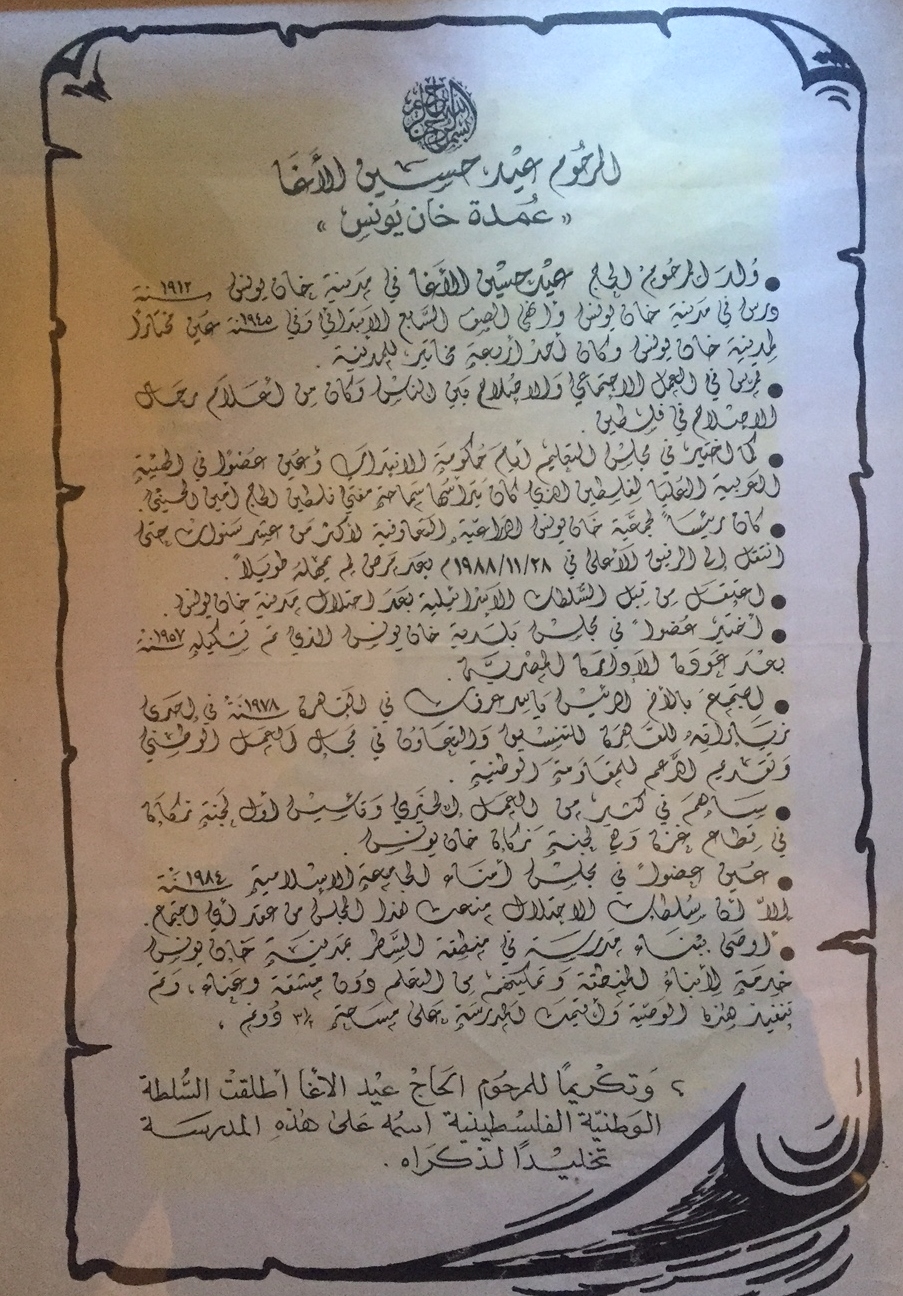 بسم الله الرحمن الرحيم
المرحُوم عيْد حسيْن الأَغَا
« عُمدة خان يُونسِ »
● وُلدَ المرحُومُ الحاج عيْد حسيْن الأَغا في مَدينةِ خَان يونسُ ١٩١٢ سنة
ودرسَ في مَدينة خان يونسُ وأنهى الصفَ السَّابع الإبتدائي وفي ١٩٤٥ سنة عُينَ مختارًا
لمدينةِ خان يونسُ وكان أحد أربعةِ مخاتير للمدينة .
● تمرسَ في العمل الاجتماعي والاصْلاح بين الناس وكان من أعْلام رجال
الاصلاح في فلسطين .
● كما اختيرَ في مجلسِ التعليم أيام حُكومة الانتداب وعُين عضوًا في الهيئة
العربية العُليا لفلسطين الذي كان يترأسُها سَماحة مُفتي فلسطين الحاج أمين الحسيني .
● كان رئيسًا لجمعيّة خان يونسُ الزراعية التعاونية لأكثر من عشر سَنوات حتى
انتقل إلى الرفيق الأعلى في ١٩٨٨/١١/٢٨م بعد مرض لم يمهله طويلاً .
● اعتقل من قبل السُّلطات الإسرائيلية بعد احتلال مدينة خان يونس .
● اختير عُضوًا في مجلس بلدية خان يونس الذي تم تشكيله ١٩٥٧ سنة
بعد عودة الإدارة المصريَّة .
● اجتمعَ بالأخ الرئيس ياسر عرفات في القاهرة ١٩٧٨ سنة في إحدى
زياراته للقاهرة للتنسيق والتعاون في مجال العمل الوطني
وتقديم الدَّعم للمقاومة الوطنية .
● ساهمَ في كثير من العمل الخيري وتأسيس أول لجنة زكاة
في قطاع غزة وهي لجنة زكاة خان يونس
● عُين عضوًا في مجلسِ أمناء الجامعة الإسلامية ١٩٨٤ سنة
إلاّ أن سُلطات الاحتلال منعت هذا المجلس من عقد أي اجتماع .
● أوصى ببناء مدرسة في منطقة السَّطر بمدينة خان يونس
خدمةً لأبناء المنطقة وتمكينهم من التعلم دون مشقة وعناء ، وتم
تنفيذ هذه الوصيّة وأقيمت المدرسة على مساحة ٣½ دُونم ،
، وَتكْريمًا للمرحُوم الحَاجْ عيْد الأغا أطلقتْ السُّلطة
الوَطنيّة الفلسْطينية اسمُه عَلى هٰذهِ المدرسَة
تخليْدًا لذكرَاه .